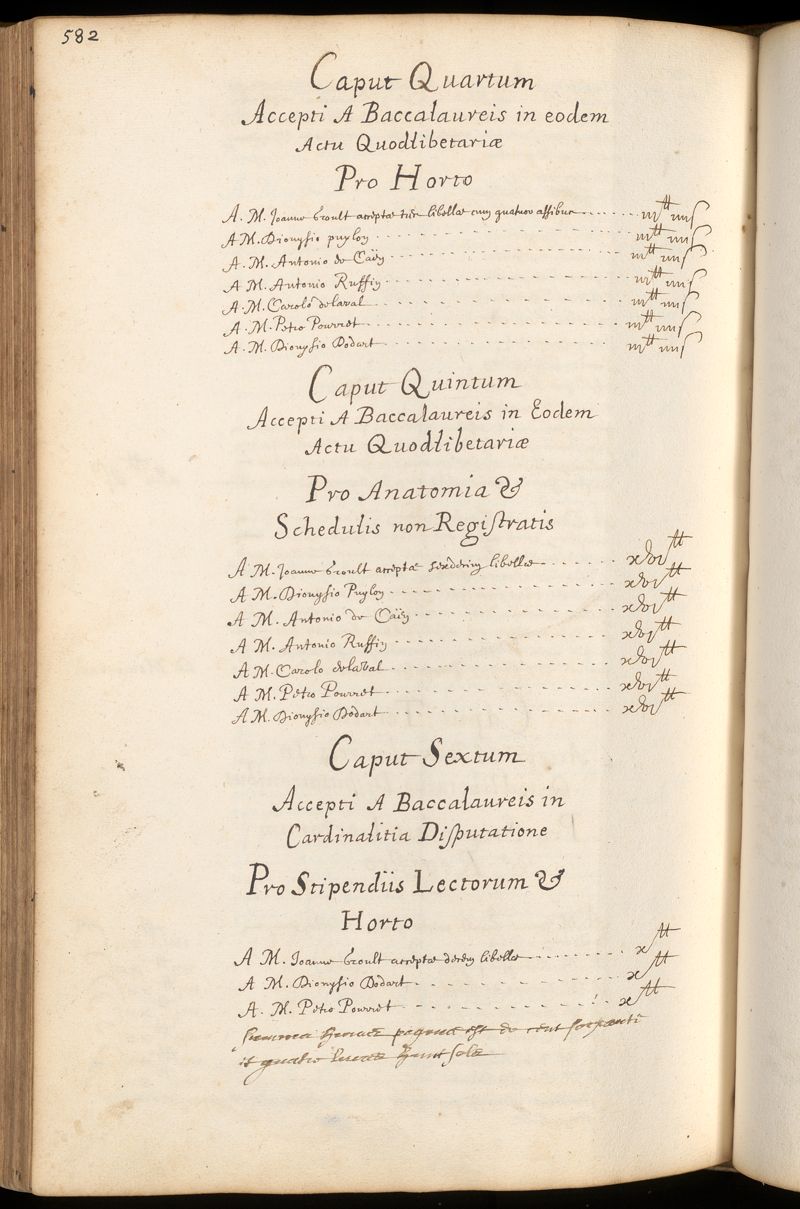 582
Caput Quartum
Accepti A Baccalaureis in eodem
Actu Quodlibetariæ
Pro Horto
A. M. Joanne Groult acceptæ tres libellæ cum quatuor assibus iii₶ iiiis
A M. Dionysio puylon iii₶ iiiis
A. M. Antonio de Caën iii₶ iiiis
A. M. Antonio Ruffin iii₶ iiiis
A. M. Carolo delaval iii₶ iiiis
A. M. Petro Pourret iii₶ iiiis
A. M. Dionysio Dodart iii₶ iiiis
Caput Quintum
Accepti A Baccalaureis in Eodem
Actu Quodlibetariæ
Pro Anatomia &
Schedulis non Registratis
A M. Joanne Groult acceptæ sexdecim libellæ xvi₶
A M. Dionysio Puylon xvi₶
A M. Antonio de Caën xvi₶
A M. Antonio Ruffin xvi₶
A M. Carolo delaval xvi₶
A M. Petro Pourret xvi₶
A M. Dionysio Dodart xvi₶
Caput Sextum
Accepti A Baccalaureis in
Cardinalitia Disputatione
Pro Stipendiis Lectorum &
Horto
A M. Joanne Groult acceptæ decem libellæ x₶
A M. Dionysio Dodart x₶
A. M. Petro Pourret x₶
pagina est de cent
et quatre huit